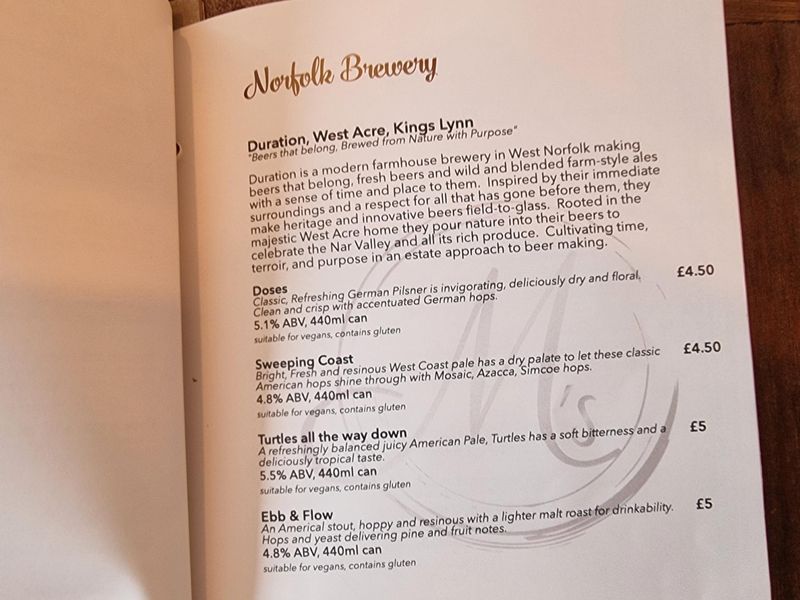 Norfolk Brewery
Duration, West Acre, Kings Lynn
"Beers that belong, Brewed from Nature with Purpose"
Duration is a modern farmhouse brewery in West Norfolk making
beers that belong, fresh beers and wild and blended farm-style ales
with a sense of time and place to them. Inspired by their immediate
surroundings and a respect for all that has gone before them, they
make heritage and innovative beers field-to-glass. Rooted in the
majestic West Acre home they pour nature into their beers to
celebrate the Nar Valley and all its rich produce. Cultivating time,
terroir, and purpose in an estate approach to beer making.
Doses £4.50
Classic, Refreshing German Pilsner is invigorating, deliciously dry and floral.
Clean and crisp with accentuated German hops.
5.1% ABV, 440ml can
suitable for vegans, contains gluten
Sweeping Coast £4.50
Bright, Fresh and resinous West Coast pale has a dry palate to let these classic
American hops shine through with Mosaic, Azacca, Simcoe hops.
4.8% ABV, 440ml can
suitable for vegans, contains gluten
Turtles all the way down £5
A refreshingly balanced juicy American Pale, Turtles has a soft bitterness and a
deliciously tropical taste.
5.5% ABV, 440ml can
suitable for vegans, contains gluten
Ebb & Flow £5
An Americal stout, hoppy and resinous with a lighter malt roast for drinkability.
Hops and yeast delivering pine and fruit notes.
4.8% ABV, 440ml can
suitable for vegans, contains gluten
M's